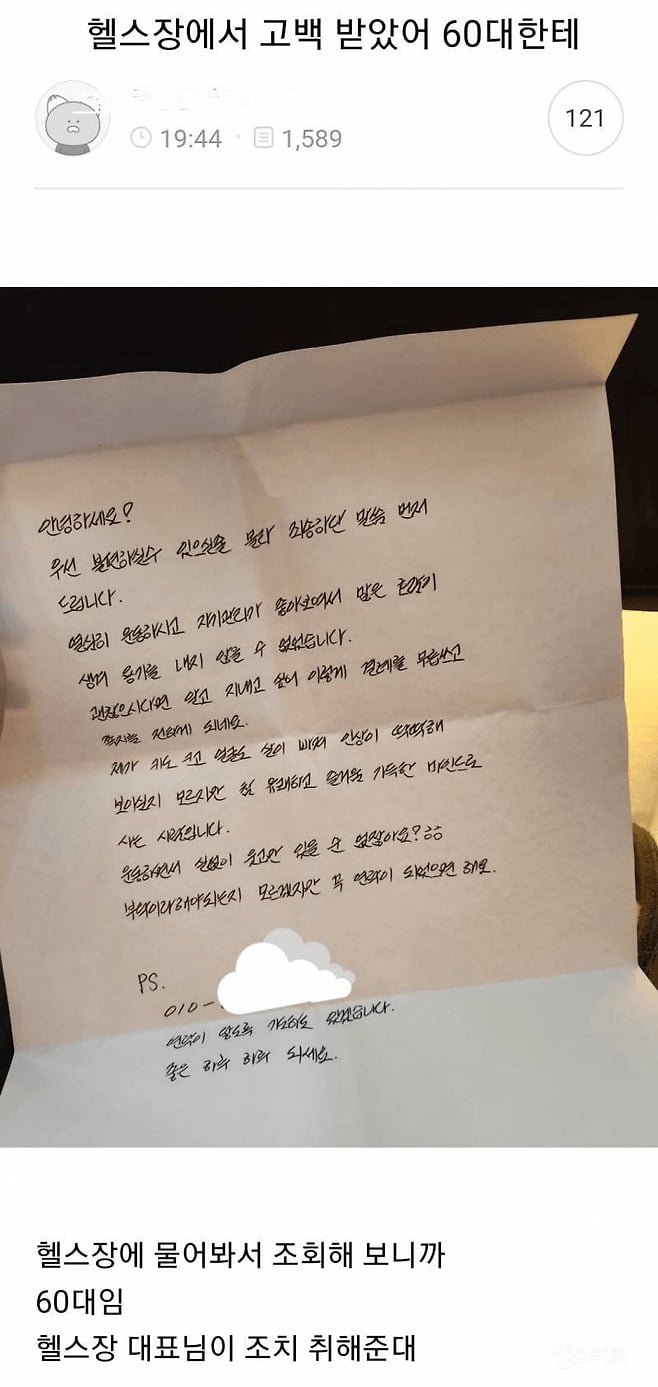 헬스장에서 고백 받았어 60대한테
19:44 · 1,589
121
안녕하세요?
우선 불편하실수 있으실줄 몰라 죄송하단 말씀 먼저
드립니다.
열심히 운동하시고 자기관리가 좋아보여서 많은 호감이
생겨 용기를 내지 않을 수 없었습니다.
괜찮으시다면 알고 지내고 싶어 이렇게 결례를 무릅쓰고
쪽지를 전하게 되네요.
제가 키도 크고 얼굴도 살이 빠져 인상이 딱딱해
보이실지 모르지만 참 유쾌하고 즐거움 가득한 마인드로
사는 사람입니다.
운동하면서 실없이 웃고만 있을 순 없잖아요?
부탁이라해야되는지 모르겠지만 꼭 연락이 되었으면 해요.
PS.
010-
연락이 않도록 기도하도 있겠습니다.
좋은 하루 하루 되세요.
헬스장에 물어봐서 조회해 보니까
60대임
헬스장 대표님이 조치 취해준대
인스티즈